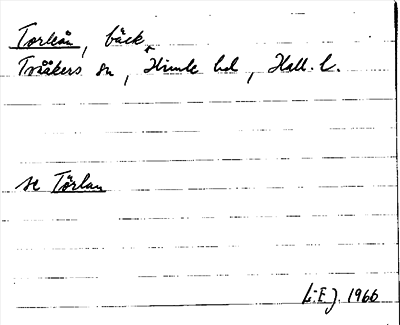 Torleån, bäck
Tvååkers sn, Himle hd, Hall. l.
se Törlan
L:E.J. 1966